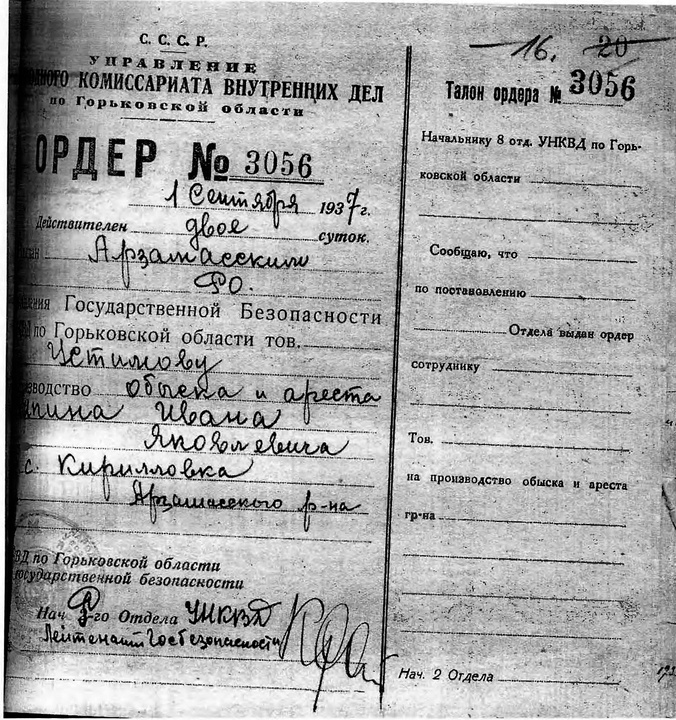 С. С. С. Р.
УПРАВЛЕНИЕ
КОМИССАРИАТА ВНУТРЕННИХ ДЕЛ
по Горьковской области
ОРДЕР № 3056
1 Сентября 1937 г.
Действителен двое суток.
Арзамасским
РО.
Государственной Безопасности
по Горьковской области тов.
Устимову
обыска и ареста
Ивана
Яковлевича
с. Кирилловка
Арзамасского р-на
по Горьковской области
государственной безопасности
Нач -го Отдела УНКВД
Лейтенант Госбезопасности
16. 20
Талон ордера № 3056
Начальнику 8 отд. УНКВД по Горь-
ковской области
Сообщаю, что
по постановлению
Отдела выдан ордер
сотруднику
Тов.
на производство обыска и ареста
гр-на
Нач. 2 Отдела